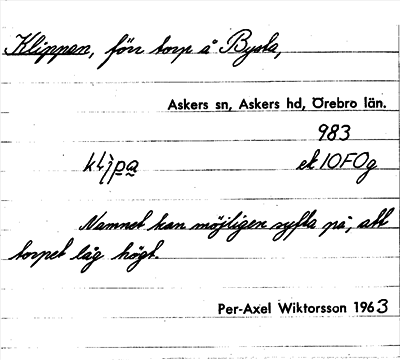 Klippan, förr torp å Bysta,
Askers sn, Askers hd, Örebro län.
983
ek 10F0g
Namnet kan möjligen syfta på, att
torpet låg högt.
Per-Axel Wiktorsson 1963